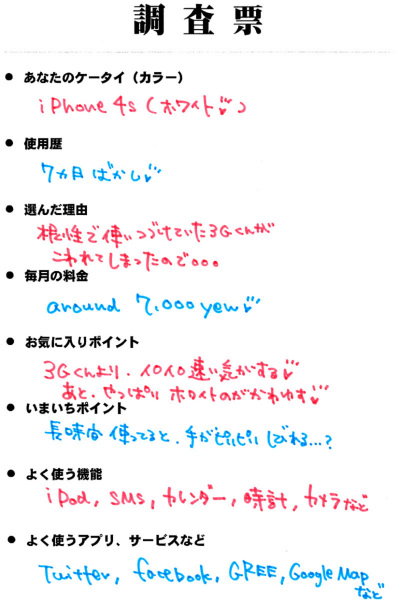 調査票
● あなたのケータイ（カラー）
iPhone 4s（ホワイト♡）
● 使用歴
7ヵ月ばかし♡
● 選んだ理由
根性で使いつづけていた3Gくんが
こわれてしまったので。。。
● 毎月の料金
around 7,000yen♡
● お気に入りポイント
3Gくんより、イロイロ速い気がする♡
あと、やっぱり ホワイトのがかわゆす♡
● いまいちポイント
長時間使ってると、手がピリピリしびれる…？
● よく使う機能
iPod, SMS, カレンダー, 時計, カメラなど
● よく使うアプリ、サービスなど
Twitter, facebook, GREE, Google Map
など